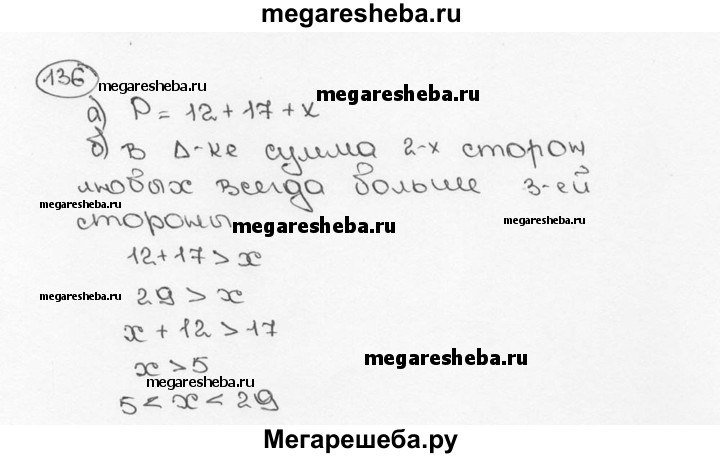 megaresheba.ru
136 megaresheba.ru
а) P = 12 + 17 + x megaresheba.ru
б) в Δ-ке сумма 2-х сторон
любых всегда больше 3-ей
megaresheba.ru
стороны megaresheba.ru megaresheba.ru
12 + 17 > x
megaresheba.ru 29 > x
x + 12 > 17
x > 5 megaresheba.ru
megaresheba.ru
5 < x < 29
Мегарешеба.ру